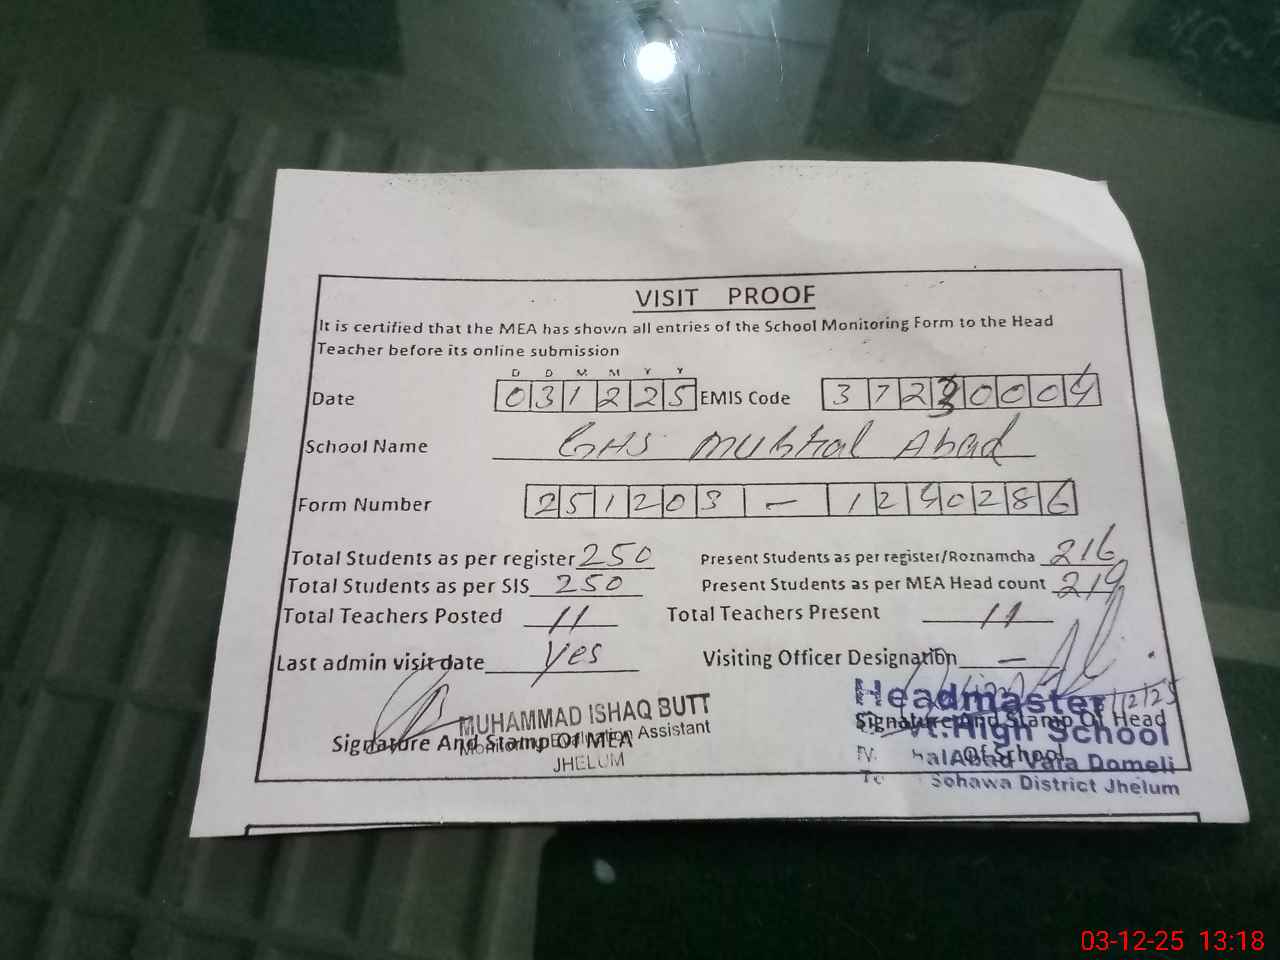 VISIT PROOF
It is certified that the MEA has shown all entries of the School Monitoring Form to the Head
Teacher before its online submission
D D M M Y Y
Date 031225 EMIS Code 37230004
School Name GHS Mubhal Abad
Form Number 251203 - 1240286
Total Students as per register 250 Present Students as per register/Roznamcha 216
Total Students as per SIS 250 Present Students as per MEA Head count 219
Total Teachers Posted 11 Total Teachers Present 11
Last admin visit date Yes Visiting Officer Designation —
MUHAMMAD ISHAQ BUTT
Monitoring Evaluation Assistant
JHELUM
Signature And Stamp Of MEA
Headmaster
Signature And Stamp Of Head
Of School
vt. High School
halAbad Domeli
Sohawa District Jhelum
03-12-25 13:18